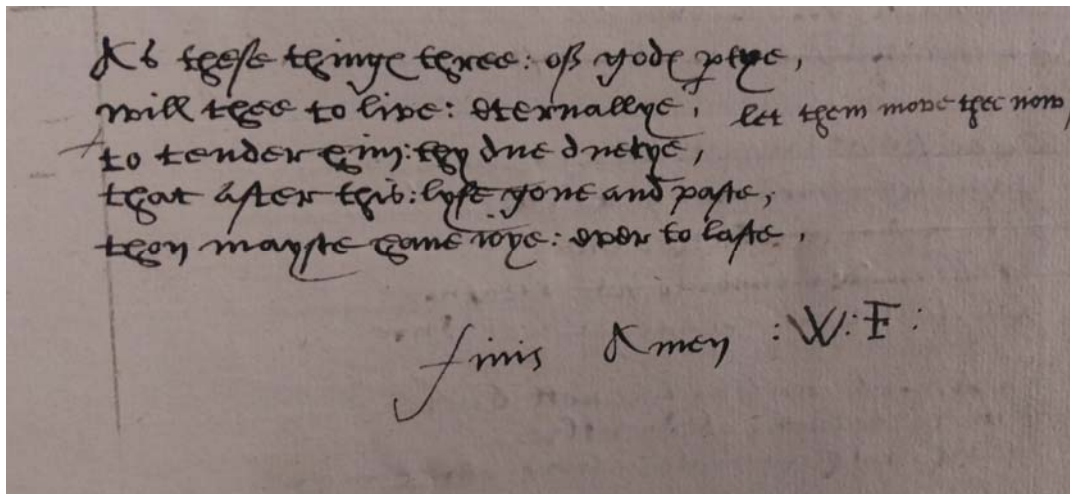 As these thingꝭ three: off godꝭ ꝑtye,
will thee to live: eternallye, let them move thee now,
to tender him: thy due duetye,
that after this: lyfe gone and paste,
thou mayste haue ioye: ever to laste.
finis Amen :W:F: